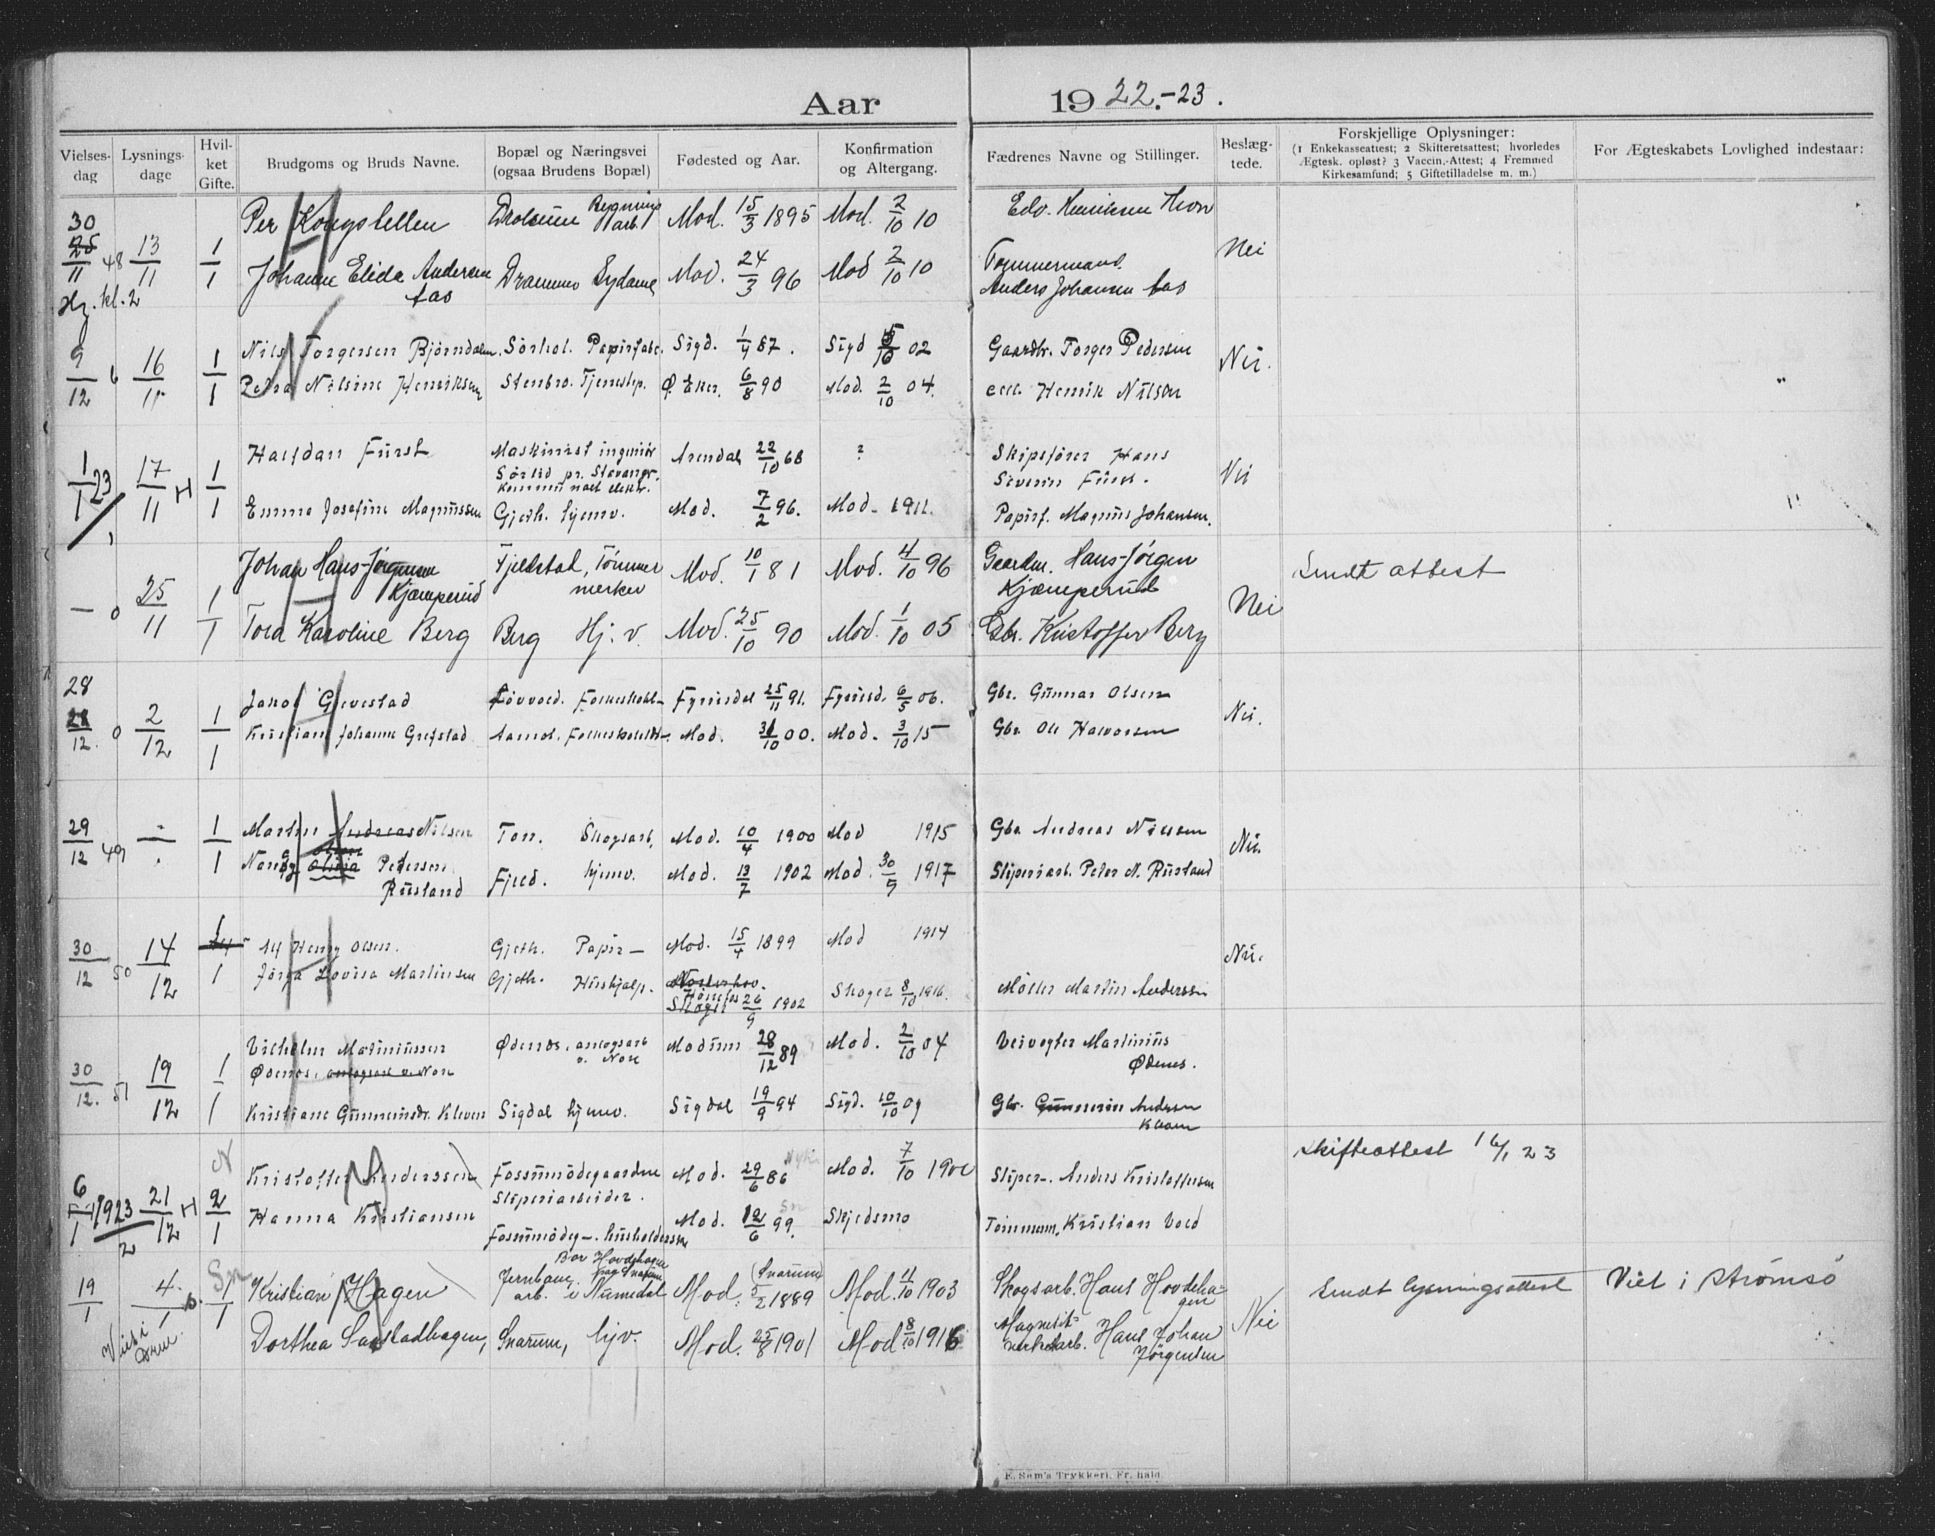 Aar 1922.-23.
Vielses-dag
Lysnings-dage
Hvil-ket Gifte.
Brudgoms og Bruds Navne.
Bopæl og Næringsvei (ogsaa Brudens Bopæl)
Fødested og Aar.
Konfirmation og Altergang.
Fædrenes Navne og Stillinger.
Beslæg-tede.
Forskjellige Oplysninger:
(1 Enkekasseattest; 2 Skifteretsattest; hvorledes
Ægtesk. opløst? 3 Vaccin.-Attest; 4 Fremmed
Kirkesamfund; 5 Giftetilladelse m. m.)
For Ægteskabets Lovlighed indestaar:
30/11 48 13/11 1/1 Per Kongslellen Mod. 15/3 1895 Mod. 2/10 10 Edv. Henriksen Nei
Johanne Elida Andersen Aas Drammen Mod. 24/3 96 Mod 2/10 10 Tømmermand. Anders Johansen Aas
9/12 16/11 1/1 Nils Torgersen Bjørndalen. Papirfabr. Sigd. 1/4 87. Sigd 02 Gaardbr. Torger Pedersen Nei.
Petra Nilsine Henriksen Stenbro. Tjenestep. Ø. Eker. 6/8 90 Mod. 2/10 04. Henrik Nilsen
1/1 23 17/11 H 1/1 Halfdan Fürst Maskinist ingeniør Arendal 22/10 68 ? Skipsfører Hans Severin Fürst. Nei
Emma Josefine Magnussen Gjeth. hjemv. Mod. 7/2 96. Mod. 1911. Papirf. Magnus Johansen.
— 0 25/11 1/1 Johan Hans-Jørgensen Kjæmperud Fjelstad, Tømmermerker Mod. 10/1 81 Mod. 4/10 96 Gaardm. Hans-Jørgen Kjæmperud Nei Sendt attest
Tora Karoline Berg Berg Hj. v. Mod. 25/10 90 Mod. 1/10 05 Gbr. Kristoffer Berg
28/12. 0 2/12 1/1 Jakob Grevestad Fyrisdal 25/11 91. Fyrisd. 6/5 06. Gbr. Gunnar Olsen Nei.
Kristiane Johanne Grefstad Mod. 00. Mod. 3/10 15 Gbr. Ole Halvorsen
29/12 49 -"- 1/1 Martin Andreas Nilsen Skogsarb. Mod. 10/4 1900 Mod 1915 Gbr. Andreas Nilsen Nei.
Nancy Olivia Pettersen Rustand hjemv. Mod. 13/7 1902 Mod. 30/9 1917 Sliperiarb. Peder N. Rustand
30/12 50 14/12 1/1 Alf Henry Olsen. Gjeth. Papir— Mod. 15/4 1899 Mod 1914 Nei.
Lovisa Martinsen Gjeth. Hushjælp. Norderhov. Hønefos Skoger 26/9 1902 Skoger 8/10 1916. Møller Martin Anderssen
30/12. 51 19/12 1/1 Vilhelm Martiniussen Ødenes. Ødenes. anlægsarb v. Nore Modum 28/12 89 Mod. 2/10 04 Veivogter Martinius Ødenes.
Kristiane Gunnarsdtr. Kleven Sigdal hjemv. Sigdal 19/9 94 Sigd. 10/10 09 Gbr. Andersen Kleven
N
6/1 1923 21/12 H 2/1 Kristoffer Anderssen Fossumødegaardene Sliperiarbeider. Mod. 29/6 86 Mod. 7/10 Sliper-. Anders Kristoffersen Skifteattest 16/1 23
Hanna Kristiansen Fossumødeg—. husholderske Mod. 12/6 99. Skjedsmo Tømmerm. Kristian Vold
19/1 4/1 Sn 1/1 Kristian Hagen Bor Hovdehagen Jernbanearb. i Numedal Mod. (Snarum) 5/2 1889 Mod. 11/10 1903 Skogsarb. Hans Hovdehagen Nei Sendt lysningsattest Viet i Strømsø
Dorthea Sandstadhagen, Snarum, hjv. Mod. 25/8 1901 Mod 8/10 1916 Magnesitverksarb. Hans Johan Jørgensen
E. Sem's Trykkeri, Fr. hald.